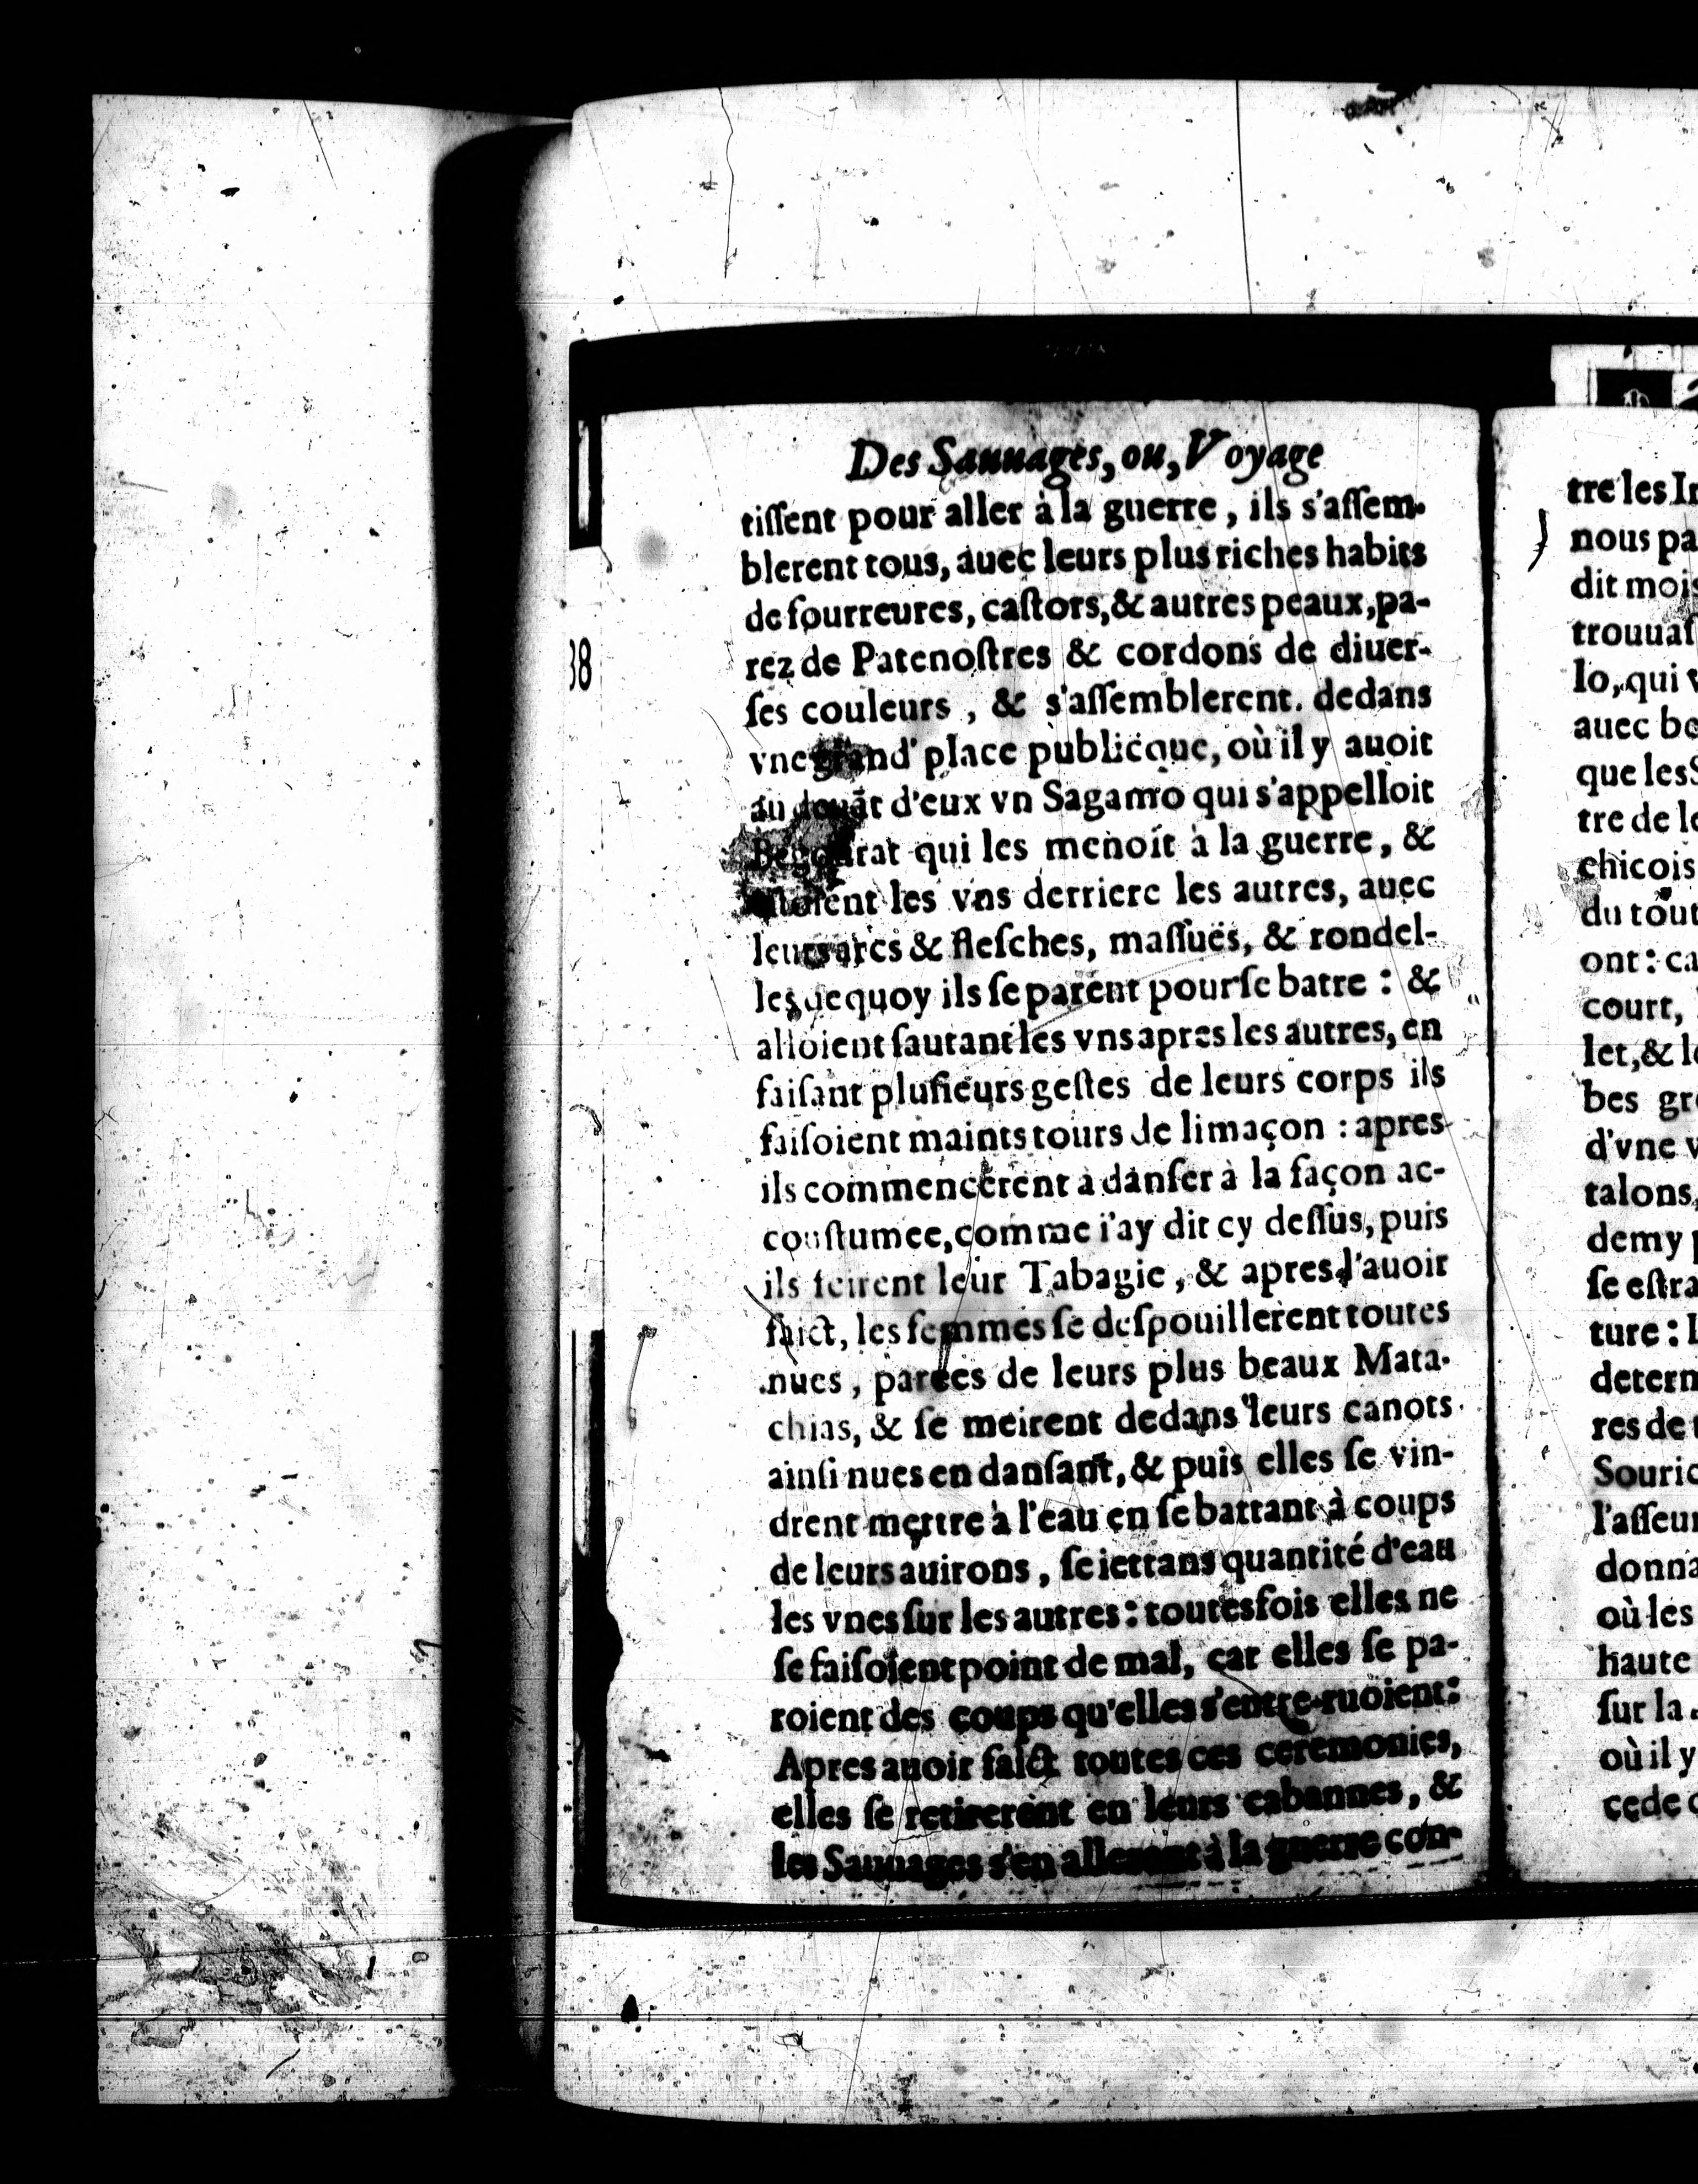 Des Sauuages, ou, Voyage
tiſſent pour aller à la guerre, ils s'aſſem-
blerent tous, auec leurs plus riches habits
de fourreures, caſtors, & autres peaux, pa-
rez de Patenoſtres & cordons de diuer-
ſes couleurs, & s'aſſemblerent. dedans
vne grand' place publicque, où il y auoit
au deuāt d'eux vn Sagamo qui s'appelloit
Begourat qui les menoit à la guerre, &
eſtoient les vns derriere les autres, auec
leurs arcs & fleſches, maſſuës, & rondel-
les, dequoy ils ſe parent pour ſe batre : &
alloient ſautant les vns apres les autres, en
faiſant pluſieurs geſtes de leurs corps ils
faiſoient maints tours de limaçon : apres
ils commencerent à danſer à la façon ac-
couſtumee, comme i'ay dit cy deſſus, puis
ils feirent leur Tabagie, & apres l'auoir
faict, les femmes ſe deſpouillerent toutes
nues, parees de leurs plus beaux Mata-
chias, & ſe meirent dedans leurs canots
ainſi nues en danſant, & puis elles ſe vin-
drent mettre à l'eau en ſe battant à coups
de leurs auirons, ſe iettans quantité d'eau
les vnes ſur les autres : toutesfois elles ne
ſe faiſoient point de mal, car elles ſe pa-
roient des coups qu'elles s'entre-ruoient :
Apres auoir faict toutes ces ceremonies,
elles ſe retirerent en leurs cabannes, &
les Sauuages s'en allerent à la guerre con-
38
tre les
nous pa
dit mois
trouuaſ
lo, qui v
auec bo
que les S
tre de le
chicois
du tout
ont : ca
court,
let, & le
bes gro
d'vne v
talons,
demy p
ſe eſtra
ture : l
determ
res de t
Souric
l'aſſeur
donna
où les
haute
ſur la
où il y
cede c